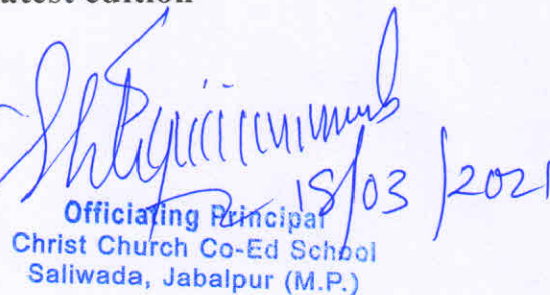 atest edition
18/03/2021
Officiating Principal
Christ Church Co-Ed School
Saliwada, Jabalpur (M.P.)